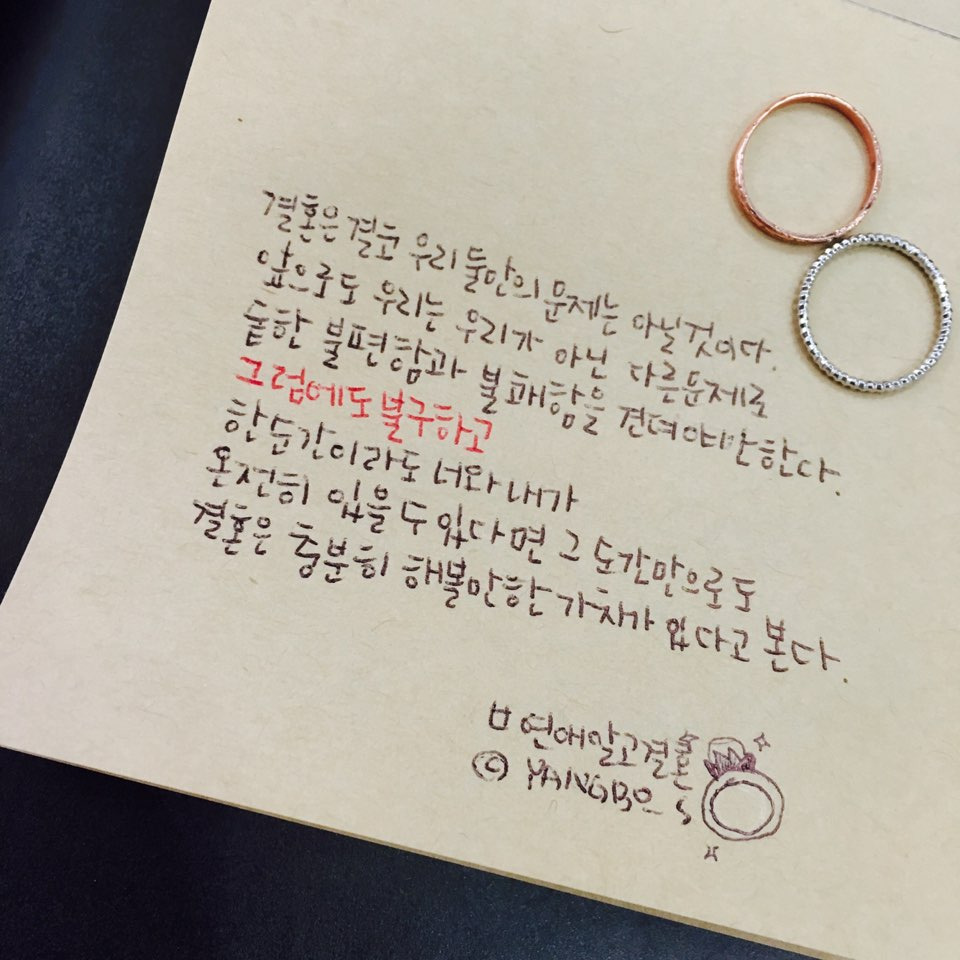 결혼은 결코 우리 둘만의 문제는 아닐것이다.
앞으로도 우리는 우리가 아닌 다른문제로
숱한 불편함과 불쾌함을 견뎌야만한다.
그럼에도불구하고
한순간이라도 너와 내가
온전히 있을 수 있다면 그 순간만으로도
결혼은 충분히 해볼만한 가치가 있다고 본다.
연애말고결혼
© YANGBO